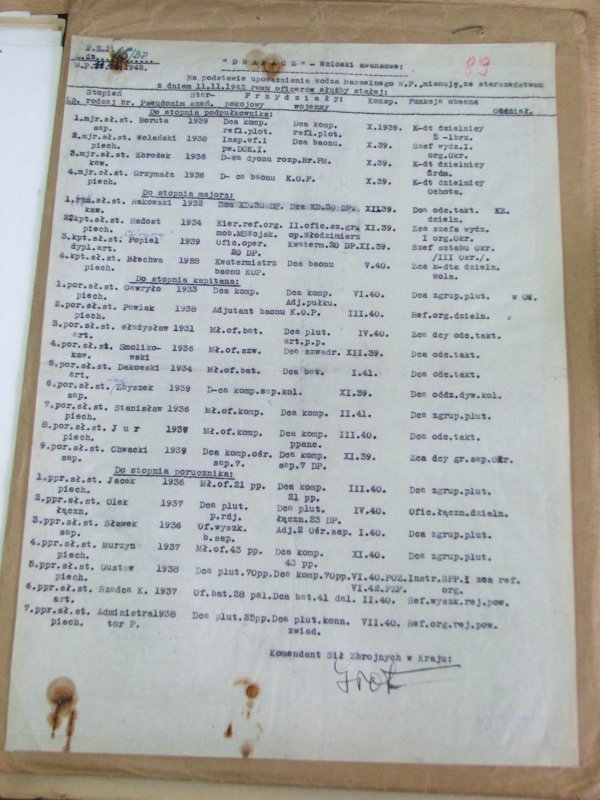 P.Z.P.
L.dz. 46/BP
M.P. 1942.
"D R A P A C Z" - Wnioski awansowe:
99
Na podstawie upoważnienia Wodza Naczelnego W.P. mianuję, ze starszeństwem
z dniem 11.11.1942 roku oficerów służby stałej:
Stopień Star- P r z y d z i a ł y :
Lp. rodzaj br. Pseudonim szeń. pokojowy wojenny Konsp. Funkcja obecna Oddział.
Do stopnia podpułkownika:
1.mjr.sł.st. Boruta 1939 Dca komp. Dca komp. X.1939. K-dt dzielnicy
sap. refl.plot. refl.plot. Ż-lbrz.
2.mjr.sł.st. Wolański 1938 Insp.wf.i Dca baonu X.39. Szef wydz.I.
piech. pw.DOK.I. org.Okr.
3.mjr.sł.st. Zbrożek 1936 D-ca dyonu rozp.Br.PM. X.39. K-dt dzielnicy
kaw. Śrdm.
4.mjr.sł.st. Grzymała 1936 D-ca baonu K.O.P. X.39. K-dt dzielnicy
piech. Ochota.
Do stopnia majora:
1.rtm.sł.st. Rakowski 1932 Dca KD.30 DP. Dca KD.30 DP. XII.39 Dca odc.takt. KZ.
kaw. dzieln.
2.kpt.sł.st. Radost 1934 Kier.ref.org. II.ofic.sz.gra XI.39 Zca szefa wydz.
mob.MSWojsk. op.Włodzimierz I org.Okr.
3.kpt.sł.st. Popiel 1939 Ofic.oper. Kwaterm.20 DP.XI.39. Szef sztabu Okr.
dypl.art. 20 DP. /III Okr./
4.kpt.sł.st. Blechwa 1928 Kwatermistrz Dca baonu V.40. Zca K-dta dzieln.
piech. baonu KOP. Wola.
Do stopnia kapitana:
1.por.sł.st. Gawryło 1933 Dca komp. Dca komp. VI.40. Dca zgrup.plut. w OW.
piech. Adj.pułku.
2.por.sł.st. Pawlak 1938 Adjutant baonu K.O.P. III.40. Ref.org.dzieln.
piech.
3.por.sł.st. Władysław 1931 Mł.of.bat. Dca plut IV.40. Zca dcy odc.takt.
art. art.p.p.
4.por.sł.st. Smoliko- 1936 Mł.of.szw. Dca szwadr. XII.39. Dca odc.takt.
kaw. wski
5.por.sł.st. Dakowski 1934 Mł.of.bat. Dca bat. I.41. Dca odc.takt.
art.
6.por.sł.st. Zbyszek 1939 D-ca komp.sap.kol. XI.39. Dca oddz.dyw.kol.
sap.
7.por.sł.st. Stanisław 1936 Mł.of.komp. Dca komp. II.41. Dca zgrup.plut.
piech.
8.por.sł.st. J u r 1939 Mł.of.komp. Dca komp. III.40. Dca odc.takt.
piech. ppanc.
9.por.sł.st. Chwacki 1939 Dca komp.ośr. Dca komp. XI.39. Zca dcy gr.sap.Okr.
sap. sap.7. sap.7 DP.
Do stopnia porucznika:
1.ppr.sł.st. Jacek 1936 Mł.of.21 pp. Dca komp. III.40. Dca zgrup.plut.
piech. 21 pp.
2.ppr.sł.st. Olek 1937 Dca plut. Dca plut. IV.40. Ofic.łączn.dzieln.
łączn. p.rdj. łączn.23 DP.
3.ppr.sł.st. Sławek 1936 Of.wyszk. Adj.2 Ośr.sap. I.40. Dca zgrup.plut.
sap. b.sap.
4.ppr.sł.st. Murzyn 1937 Mł.of.43 pp. Dca komp. XI.40. Dca zgrup.plut.
piech. 43 pp.
5.ppr.sł.st. Gustaw 1938 Dca plut.70pp.Dca komp.70pp.VI.40.POZ.Instr.SPP.i zca ref.
piech. VI.42.PZP. org.
6.ppr.sł.st. Rządca K. 1937 Of.bat.28 pal.Dca bat.41 dal. II.40. Ref.wyszk.rej.pow.
art.
7.ppr.sł.st. Administra1938 Dca plut.25pp.Dca plut.konn. VII.40. Ref.org.rej.pow.
piech. tor P. zwiad.
Komendant Sił Zbrojnych w Kraju:
Grot